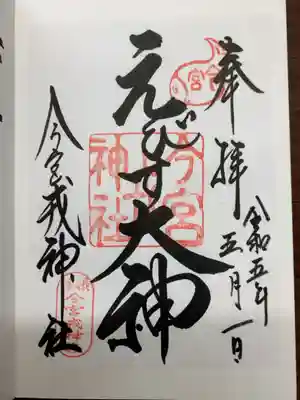 奉拝
令和五年
五月一日
えびす大神
今宮戎神社
今宮
神社